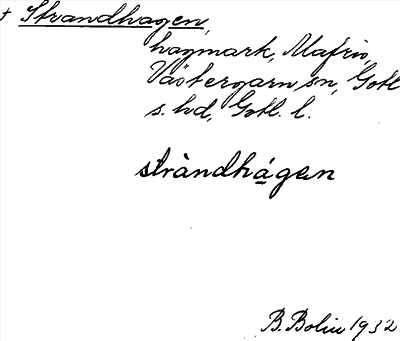 + Strandhagen,
hagmark, Mafrids,
Västergarn sn, Gotl.
s. hd, Gotl. l.
stràndhágen
B. Bolin 1932